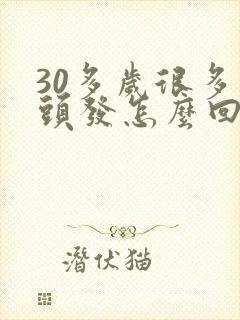 30多歲很多
頭發怎麼回
潛伏猫